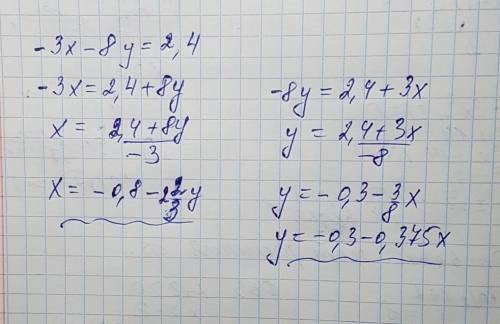 -3x-8y=2,4
-3x=2,4+8y
x= 2,4+8y
-3
x= -0,8-2 2/3 y
-8y=2,4+3x
y= 2,4+3x
-8
y=-0,3-3/8x
y=-0,3-0,375x